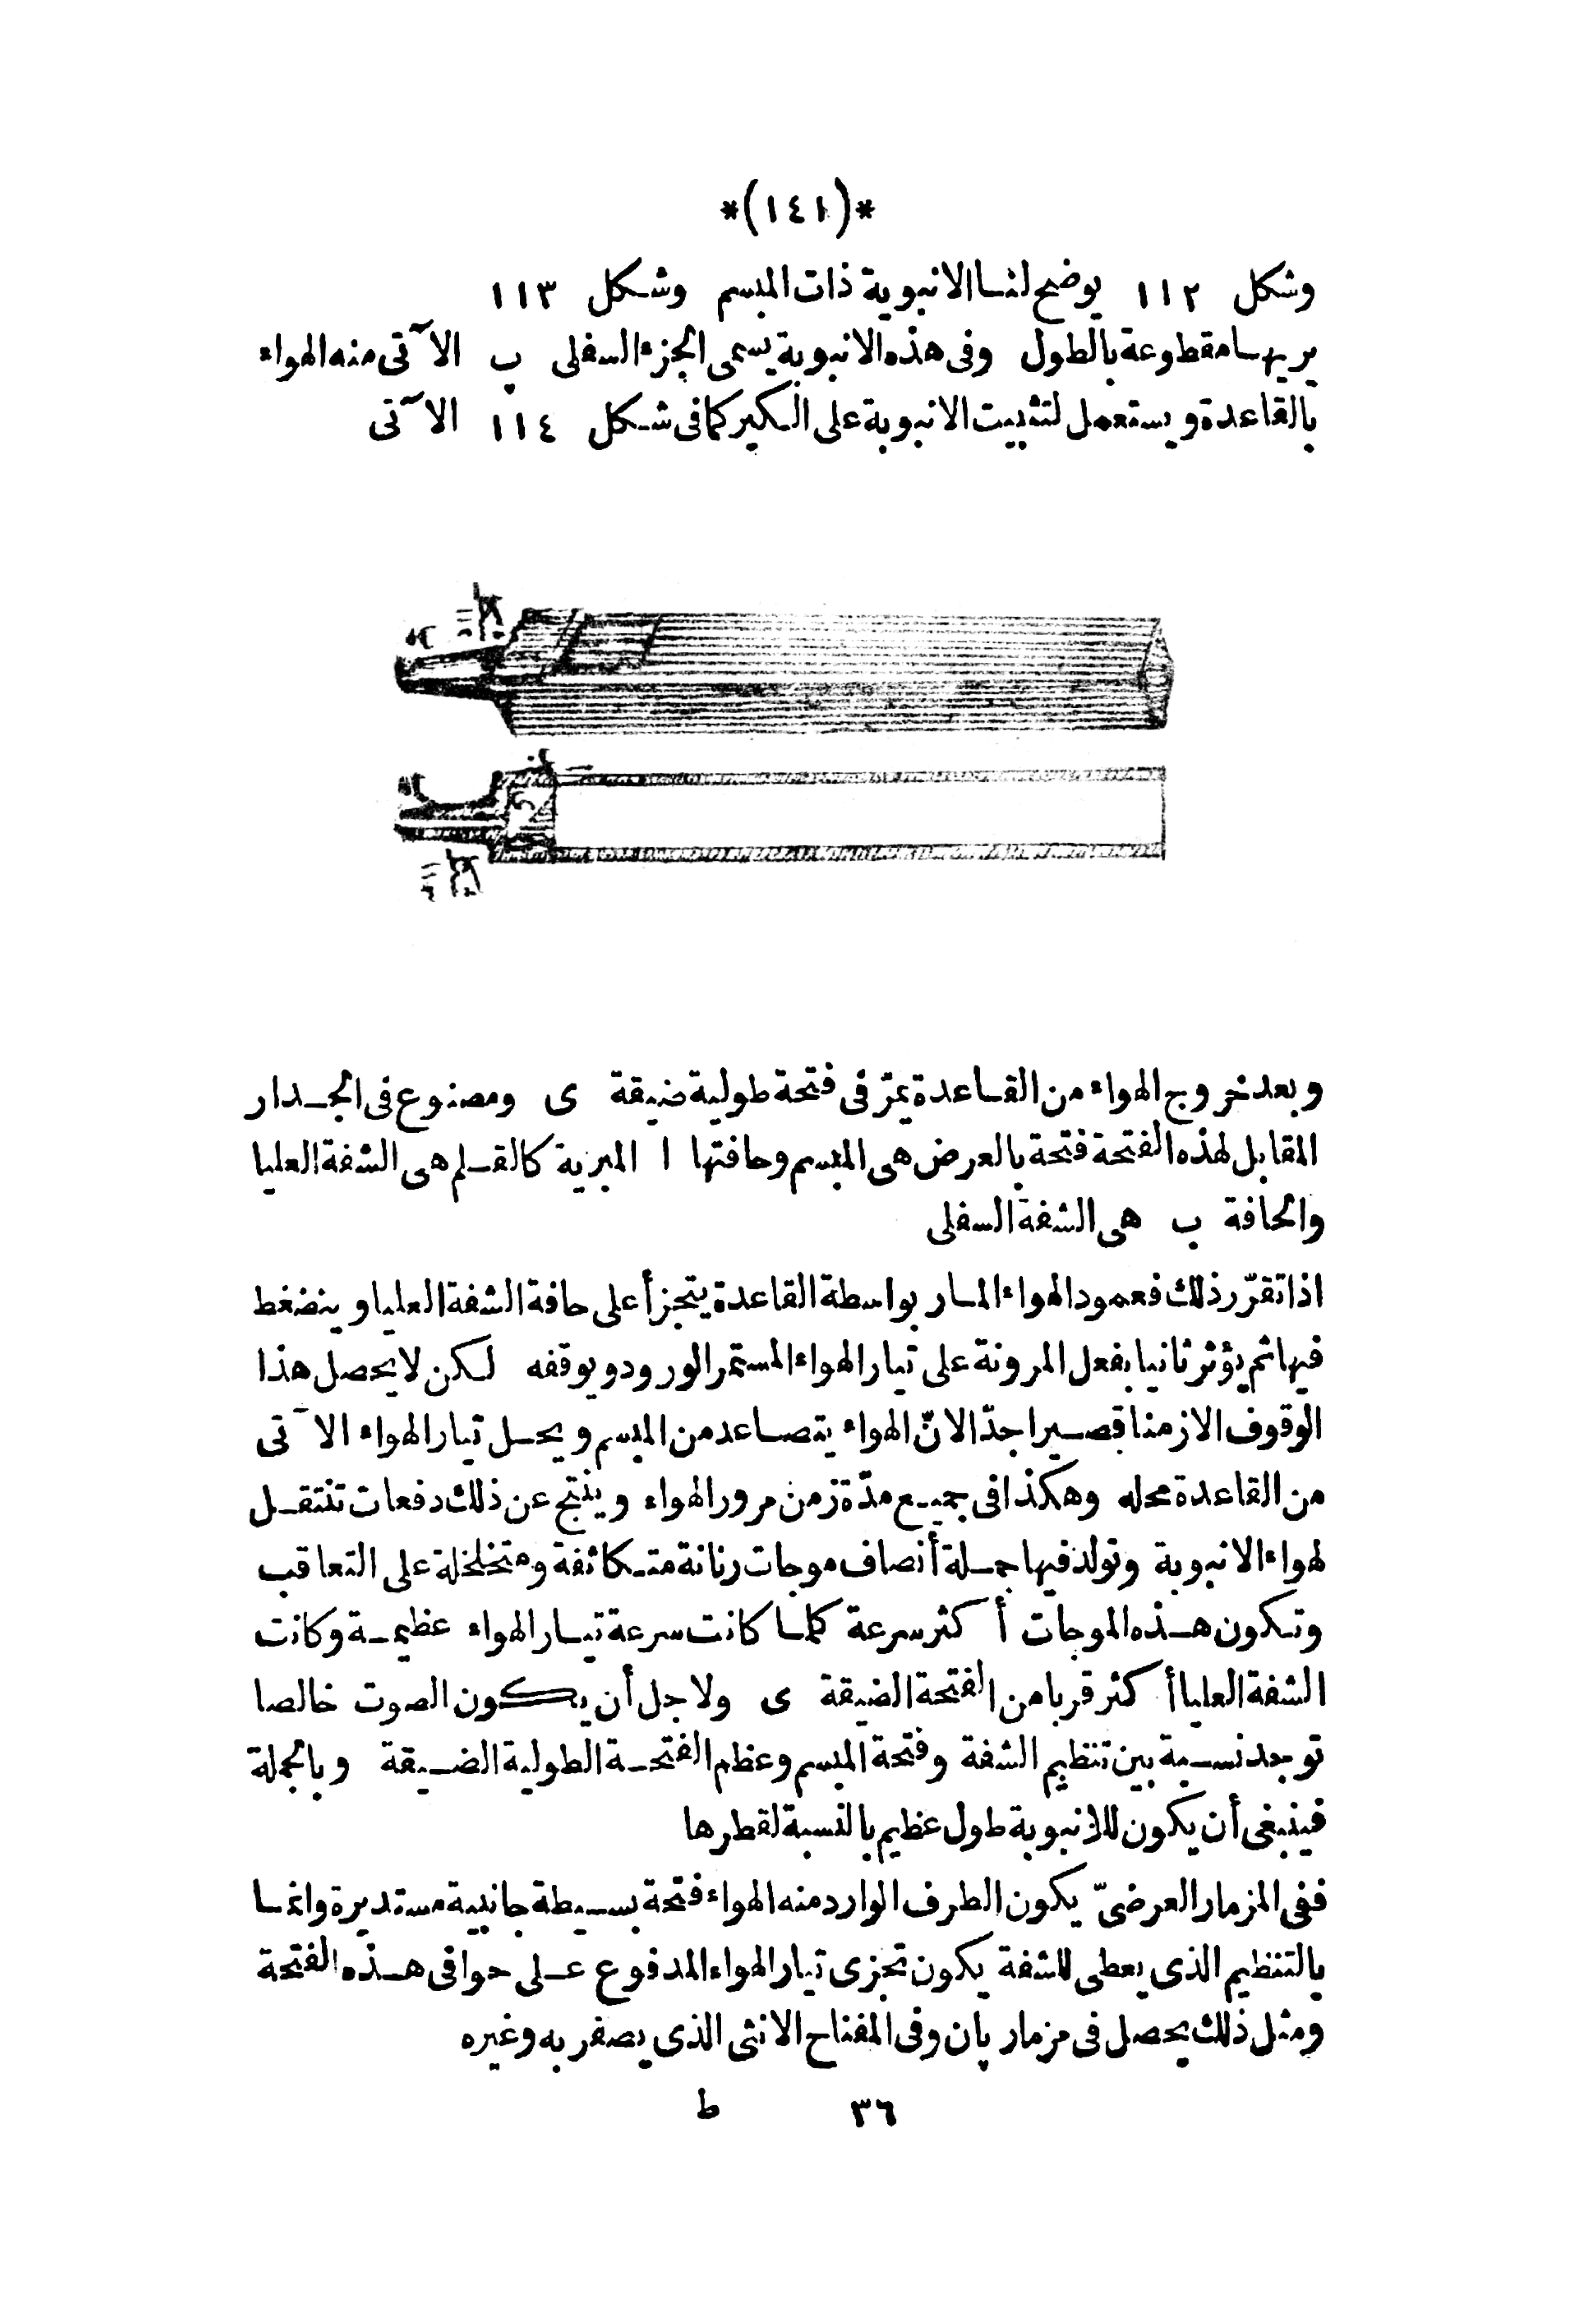 *(١٤١)*
وشكل ١١٢ يوضح لنا الانبوبة ذات المبسم وشكل ١١٣
يريها مقطوعة بالطول وفى هذه الانبوبة يسمى الجزء السفلى ب الآتى منه الهواء
بالقاعدة ويستعمل لتثبيت الانبوبة على الكير كما فى شكل ١١٤ الآتى
وبعد خروج الهواء من القاعدة يمرّ فى فتحة طولية ضيقة ى ومصنوع فى الجدار
المقابل لهذه الفتحة فتحة بالعرض هى المبسم وحافتها ا المبرية كالقلم هى الشفة العليا
والحافة ب هى الشفة السفلى
اذا تقرّر ذلك فعمود الهواء المار بواسطة القاعدة يتجزأ على حافة الشفة العليا وينضغط
فيها ثم يؤثر ثانيا بفعل المرونة على تيار الهواء المستمر الورود ويوقفه لكن لا يحصل هذا
الوقوف الا زمنا قصيرا جدّا لانّ الهواء يتصاعد من المبسم ويحل تيار الهواء الآتى
من القاعدة محله وهكذا فى جميع مدّة زمن مرور الهواء وينتج عن ذلك دفعات تنتقل
لهواء الانبوبة وتولد فيها جملة أنصاف موجات رنانة متكاثفة ومتخلخلة على التعاقب
وتكون هذه الموجات أكثر سرعة كلما كانت سرعة تيار الهواء عظيمة وكانت
الشفة العليا أكثر قربا من الفتحة الضيقة ى ولاجل أن يكون الصوت خالصا
توجد نسبة بين تنظيم الشفة وفتحة المبسم وعظم الفتحة الطولية الضيقة وبالجملة
فينبغى أن يكون للانبوبة طول عظيم بالنسبة لقطرها
ففى المزمار العرضىّ يكون الطرف الوارد منه الهواء فتحة بسيطة جانبية مستديرة وانما
بالتنظيم الذى يعطى للشفة يكون تجزى تيار الهواء المدفوع على حوافى هذه الفتحة
ومثل ذلك يحصل فى مزمار پان وفى المفتاح الانثى الذى يصفر به وغيره
٣٦ ط